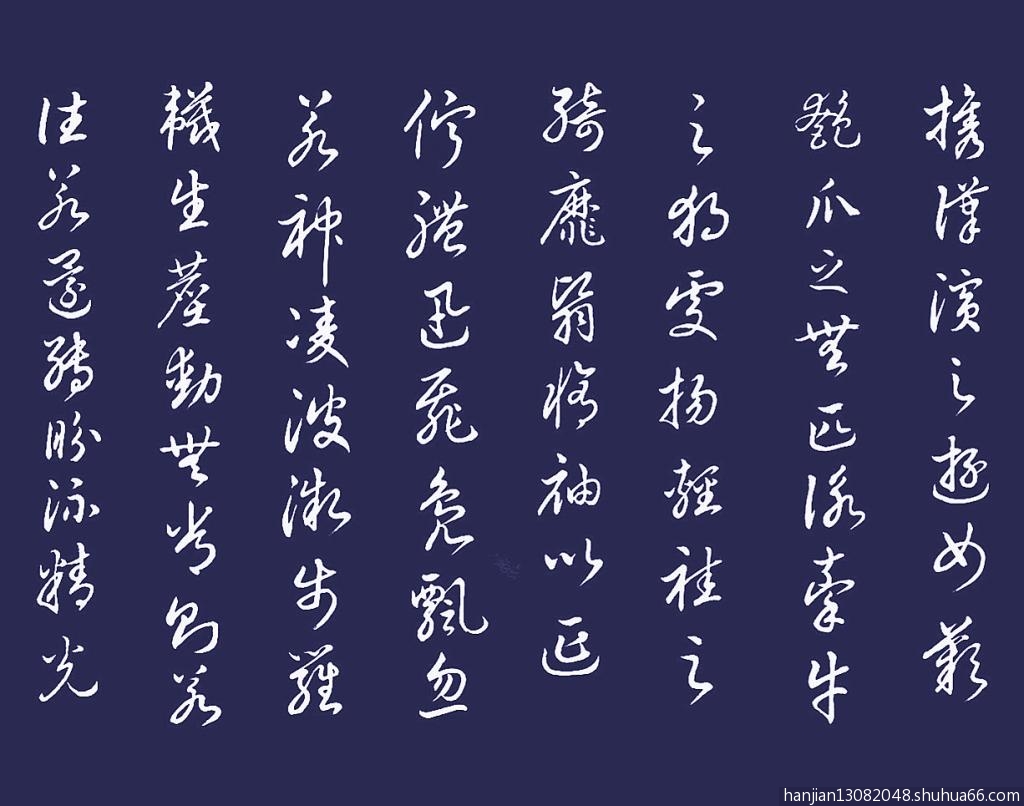 攜漢濱之遊女歎
匏瓜之無匹詠牽牛
之獨處揚輕袿之
綺靡翳脩袖以延
佇體迅飛鳧飄忽
若神凌波微步羅
韈生塵動無常則若
往若還轉盼流精光
hanjian13082048.shuhua66.com